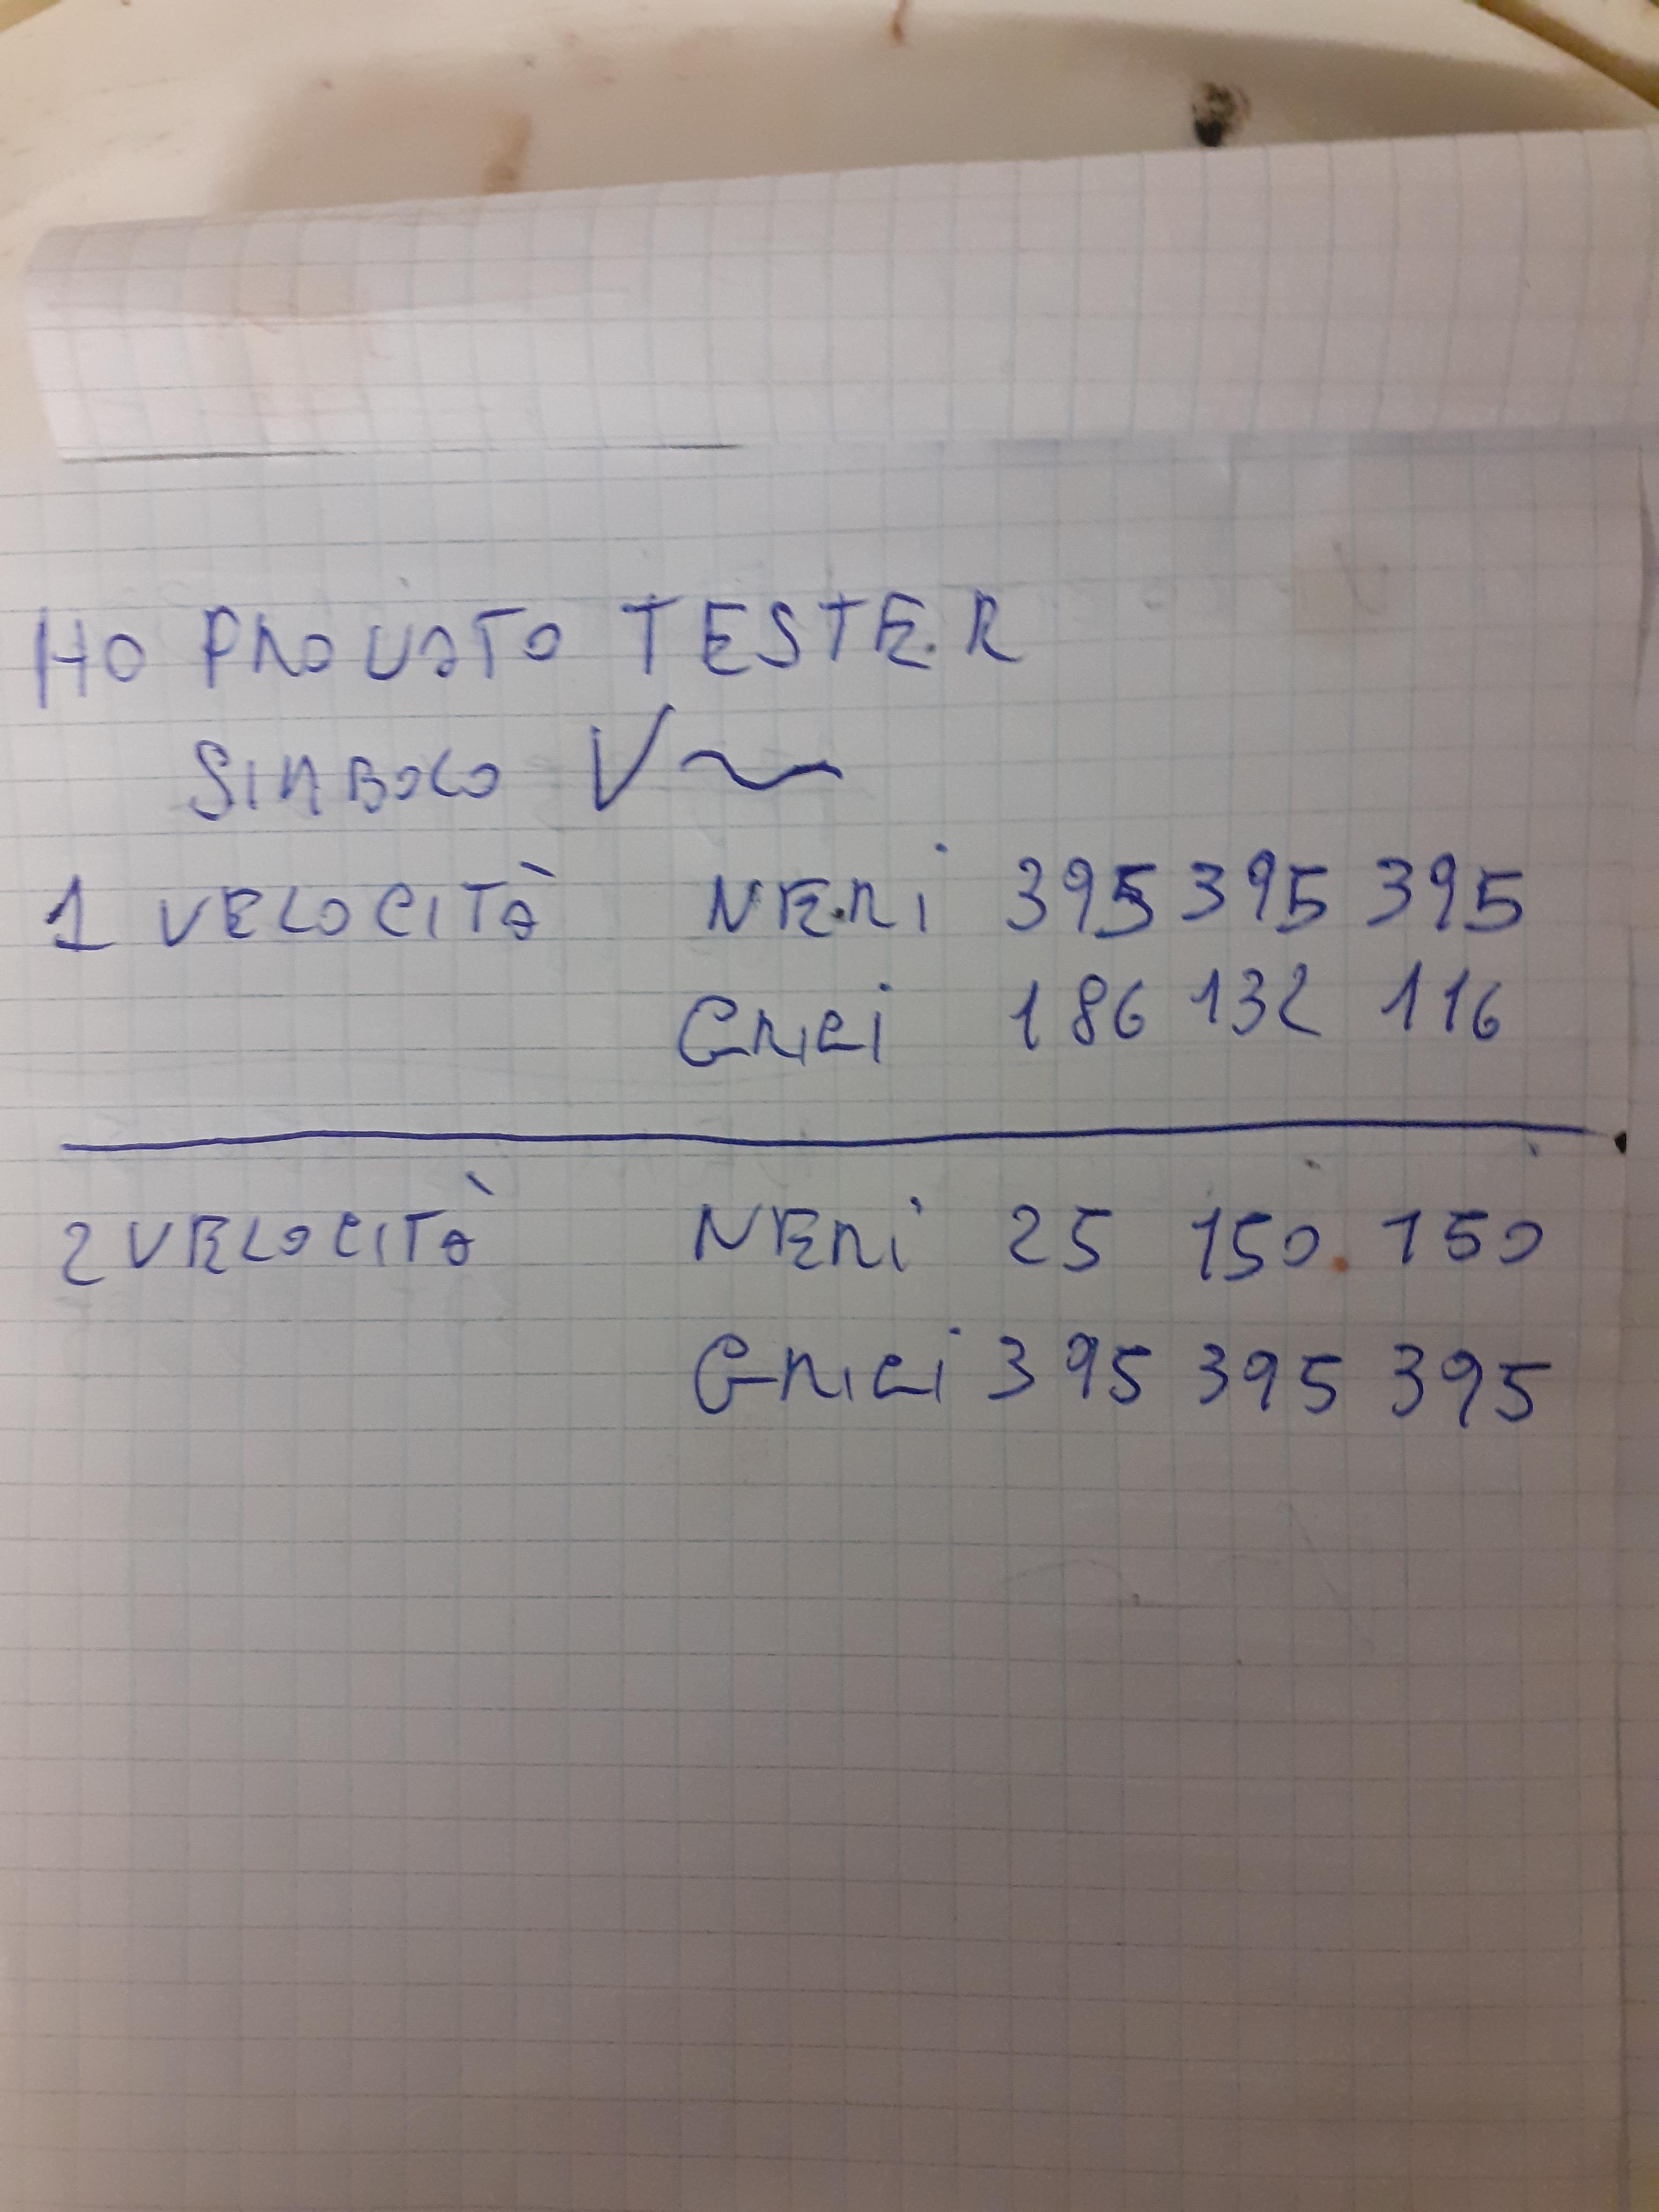 HO PROVATO TESTER
SIMBOLO V~
1 VELOCITÀ NERI 395 395 395
GRIGI 186 132 116
2 VELOCITÀ NERI 25 150 150
GRIGI 395 395 395